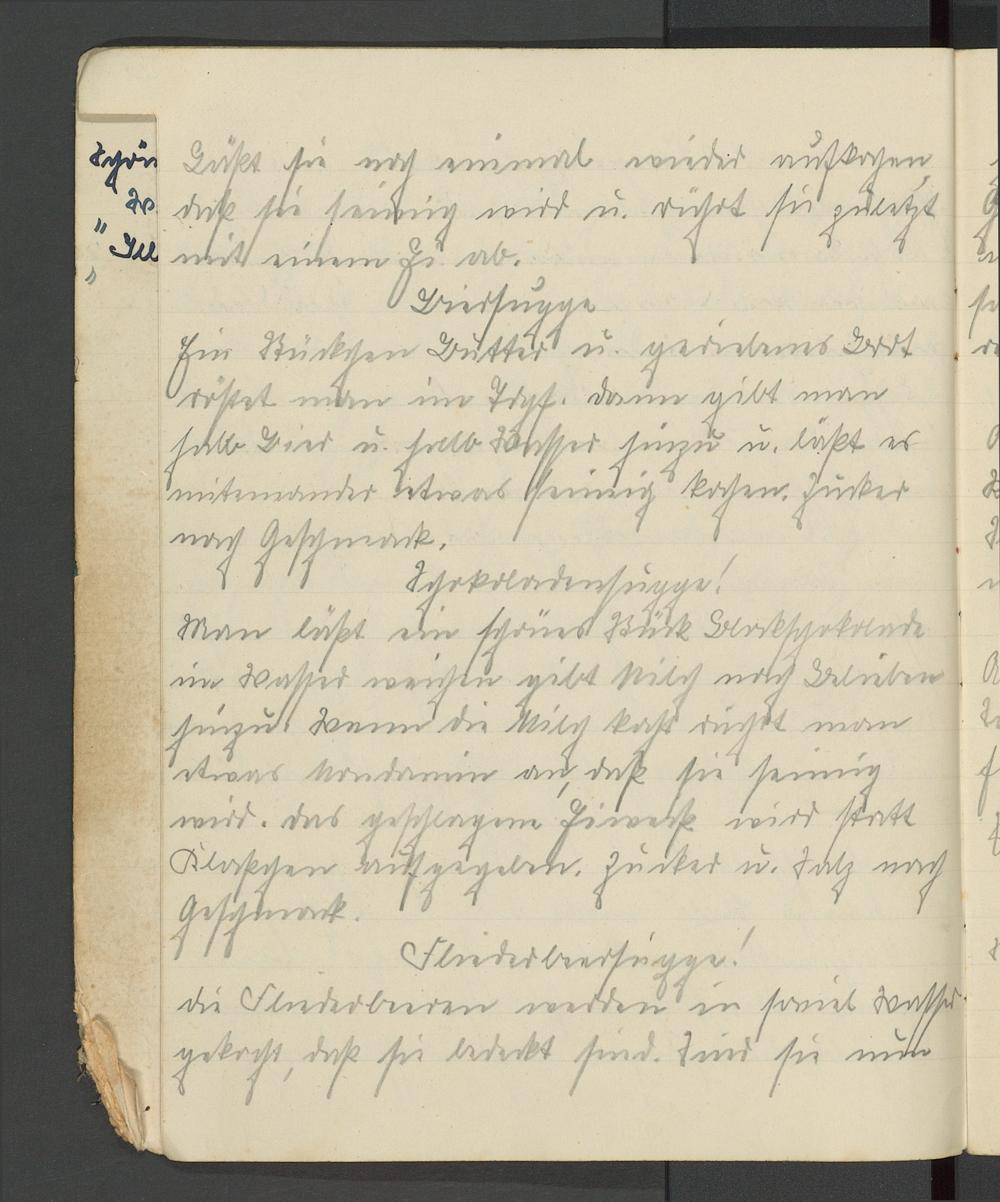 Läßt sie noch einmal wieder aufkochen,
daß sie seimig wird u. rührt sie zuletzt
mit einem Ei ab.
Biersuppe
Ein Stückchen Butter u. geriebenes Brot
röstet man im Topf. Dann gibt man
halb Bier u. halb Wasser hinzu u. läßt es
miteinander etwas seimig kochen. Zucker
nach Geschmack.
Schokoladensuppe!
Man läßt ein schönes Stück Blockschokolade
im Wasser weichen gibt Milch nach Belieben
hinzu. Wenn die Milch kocht rührt man
etwas Mondamin an, daß sie seimig
wird. Das geschlagene Eiweiß wird statt
Klößchen aufgegeben. Zucker u. Salz nach
Geschmack.
Fliederbeersuppe!
Die Fliederbeeren werden in soviel Wasser
gekocht, daß sie bedeckt sind. Sind sie nun